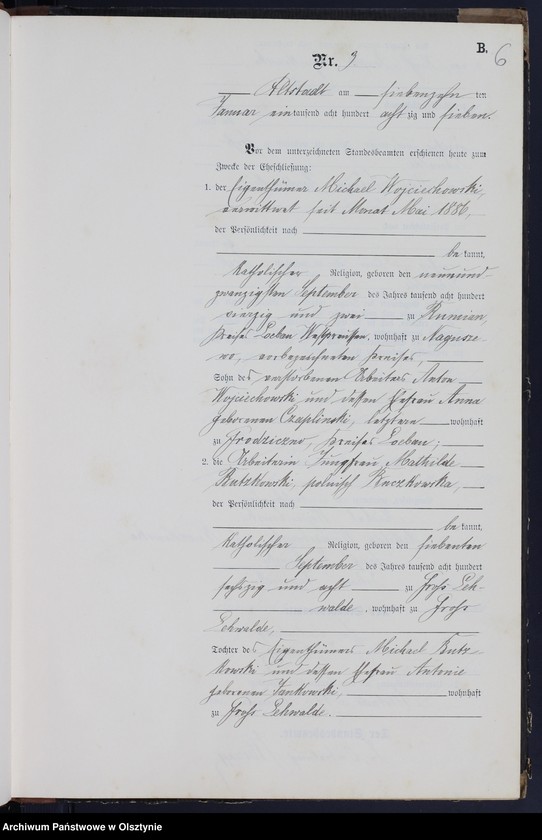 B.
6
Nr. 3
Altstadt am siebenzehn ten
Januar eintausend acht hundert acht zig und sieben.
Vor dem unterzeichneten Standesbeamten erschienen heute zum
Zwecke der Eheschließung:
1. der Eigenthümer Michael Wojciechowski,
verwittwet seit Monat Mai 1886,
der Persönlichkeit nach
be kannt,
katholischer Religion, geboren den neunund-
zwanzigsten September des Jahres tausend acht hundert
vierzig und zwei zu Rumian,
Kreises Loebau Westpreußen, wohnhaft zu
wo, vorbezeichneten Kreises,
Sohn des verstorbenen Arbeiters Anton
Wojciechowski und dessen Ehefrau Anna
geborenen Czaplinski, letztere wohnhaft
zu Grodziczno, Kreises Loebau;
2. die Arbeiterin Jungfrau Mathilde
Rutzkowski, polnisch Ruczkowska,
der Persönlichkeit nach
be kannt,
katholischer Religion, geboren den siebenten
September des Jahres tausend acht hundert
sechszig und acht zu Groß Leh-
walde, wohnhaft zu Groß
Lehwalde,
Tochter des Eigenthümers Michael Rutz-
kowski und dessen Ehefrau Antonie
geborenen Jankowski, wohnhaft
zu Groß Lehwalde.
Archiwum Państwowe w Olsztynie